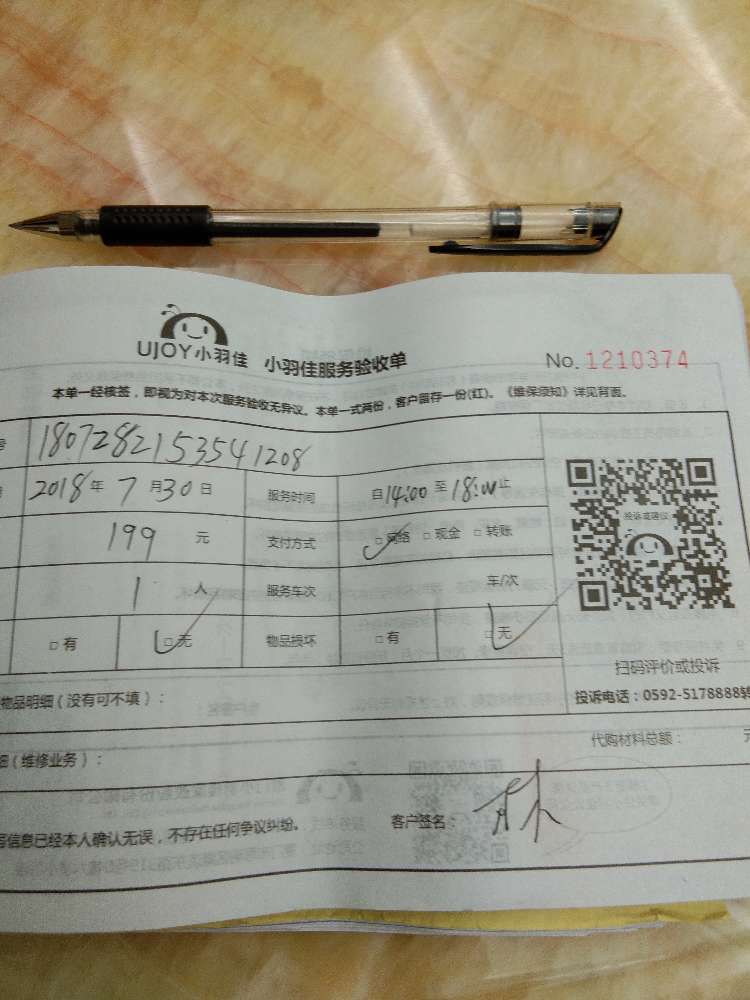 UJOY小羽佳 小羽佳服务验收单 No. 1210374
本单一经核签，即视为对本次服务验收无异议。本单一式两份，客户留存一份(红)。《维保须知》详见背面。
号 180728215354 1208
2018年 7月30日 服务时间 自14:00至18:00止
199 元 支付方式 □网络 □现金 □转账
1 人 服务车次 车/次
□有 □无 物品损坏 □有 □无
投诉或建议
扫码评价或投诉
投诉电话：0592-5178888转
物品明细（没有可不填）：
代购材料总额： 元
细（维修业务）：
写信息已经本人确认无误，不存在任何争议纠纷。 客户签名： 林